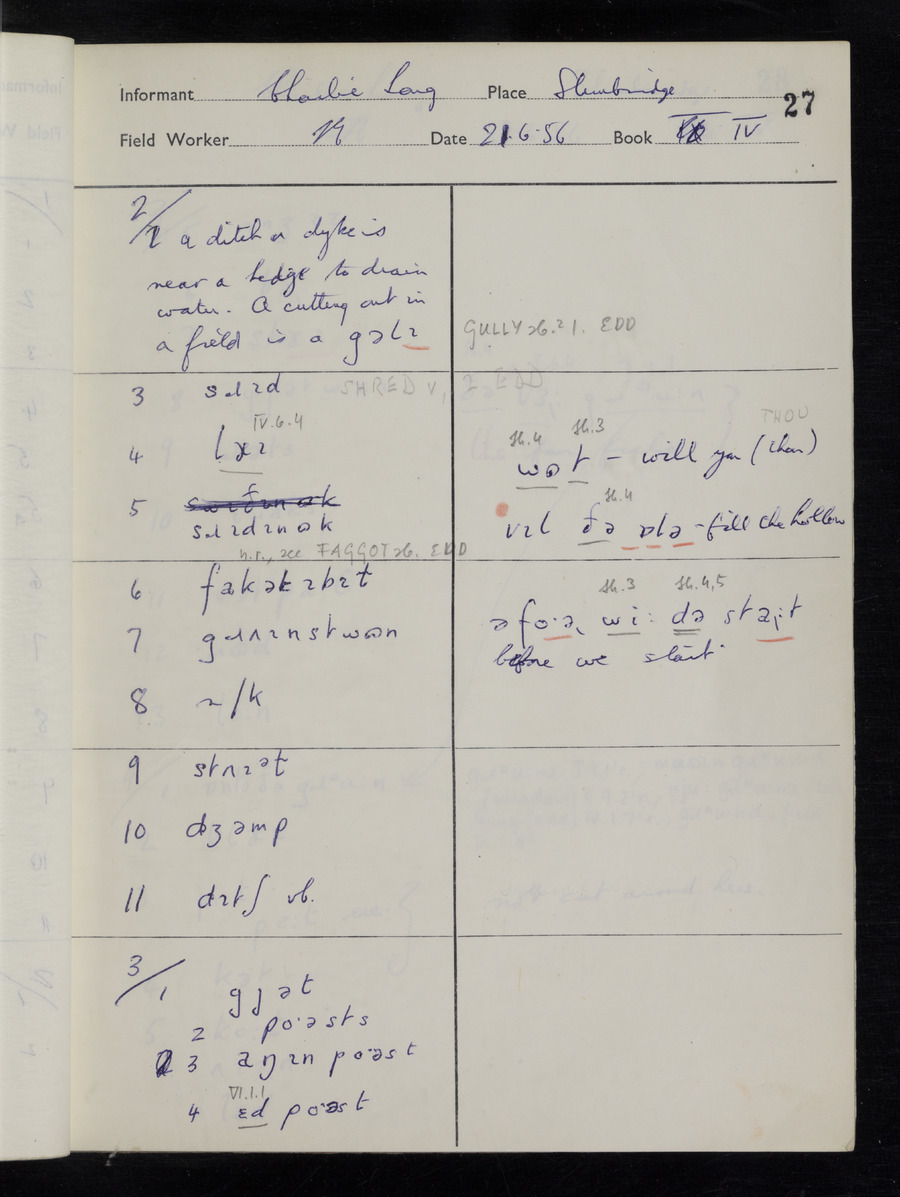 Informant Charlie Long Place Slimbridge 27
Field Worker Date 21·6·56 Book IV
2/
1 a ditch or dyke is
near a hedge to drain
water. A cutting out in
a field is a gəlɪ
GULLY sb.² 1. EDD
3 sɹɪd SHRED v, 2 EDD
IV.6.4
4
sh.4 sh.3 THOU
wʊt – will you (thou)
5
sɹɪdɪn ʊk
sh.4
vɪl ðə ɒlə – fill the hollow
n.r., see FAGGOT sb. EDD
6 fakəkɪbɪt
7 gɹʌɪnstwʊn
sh.3 sh.4,5
əfoˑəɻ wiː də staɻːt
before we start
8 ~/k
9 stʌɪət
10 dʒəmp
11 dɪtʃ vb.
3/
1 gjət
2 poˑəsts
3 aŋɪn poˑəst
VI.1.1
4 ɛd poˑəst